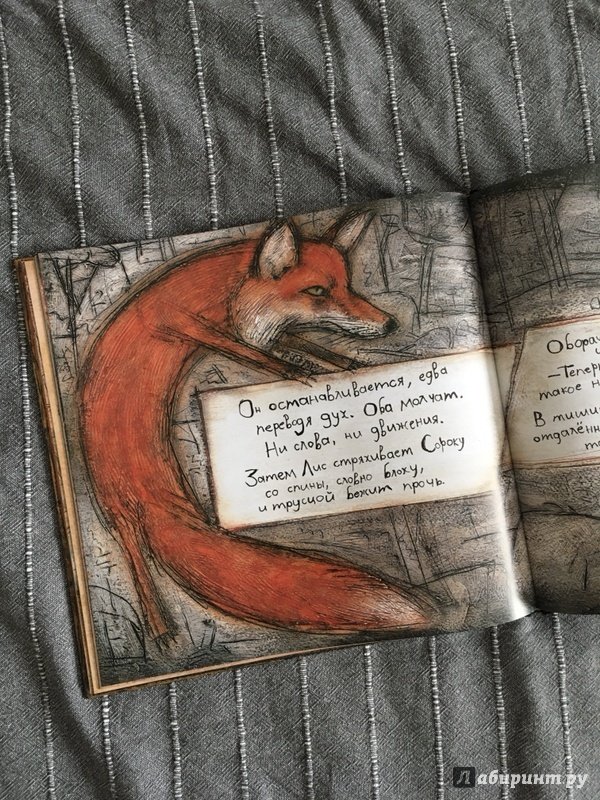 Он останавливается, едва
переводя дух. Оба молчат.
Ни слова, ни движения.
Затем Лис стряхивает Сороку
со спины, словно блоху,
и трусцой бежит прочь.
–Тепер
такое н
В тиши
отдалённ
Лабиринт.ру